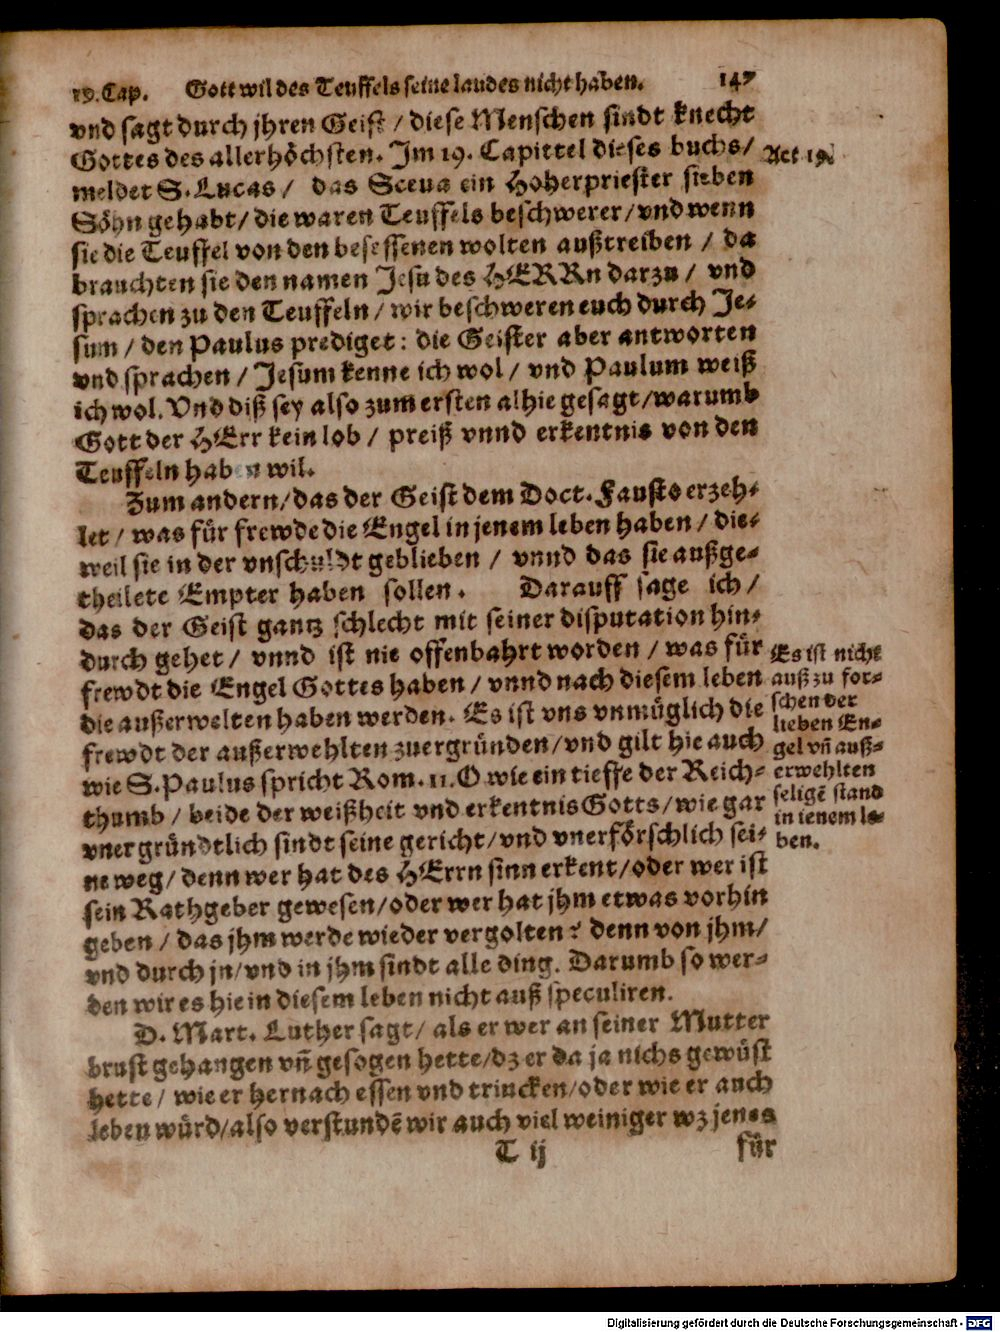 19. Cap. Gott wil des Teuffels seine laudes nicht haben. 147
vnd sagt durch jhren Geist / diese Menschen sindt knecht
Gottes des allerhöchsten. Im 19. Capittel dieses buchs /
Act 19.
meldet S. Lucas / das Sceua ein Hoherpriester sieben
Söhn gehabt / die waren Teuffels beschwerer / vnd wenn
sie die Teuffel von den besessenen wolten außtreiben / da
brauchten sie den namen Jesu des HERRn darzu / vnd
sprachen zu den Teuffeln / wir beschweren euch durch Je-
sum / den Paulus prediget : die Geister aber antworten
vnd sprachen / Jesum kenne ich wol / vnd Paulum weiß
ich wol. Vnd diß sey also zum ersten alhie gesagt / warumb
Gott der HErr kein lob / preiß vnnd erkentnis von den
Teuffeln haben wil.
Zum andern / das der Geist dem Doct. Fausto erzeh-
let / was für frewde die Engel in jenem leben haben / die-
weil sie in der vnschuldt geblieben / vnnd das sie außge-
theilete Empter haben sollen. Darauff sage ich /
das der Geist gantz schlecht mit seiner disputation hin-
durch gehet / vnnd ist nie offenbahrt worden / was für
frewdt die Engel Gottes haben / vnnd nach diesem leben
die außerwelten haben werden. Es ist vns vnmüglich die
frewdt der außerwehlten zuergründen / vnd gilt hie auch
wie S. Paulus spricht Rom. 11. O wie ein tieffe der Reich-
thumb / beide der weißheit vnd erkentnis Gotts / wie gar
vnergründtlich sindt seine gericht / vnd vnerförschlich sei-
ne weg / denn wer hat des HErrn sinn erkent / oder wer ist
sein Rathgeber gewesen / oder wer hat jhm etwas vorhin
geben / das jhm werde wieder vergolten? denn von jhm /
vnd durch jn / vnd in jhm sindt alle ding. Darumb so wer-
den wir es hie in diesem leben nicht auß speculiren.
Es ist nicht
auß zu for-
schen der
lieben En-
gel vn̄ auß-
erwehlten
seligē stand
in ienem le-
ben.
D. Mart. Luther sagt / als er wer an seiner Mutter
brust gehangen vn̄ gesogen hette / dz er da ja nichs gewüst
hette / wie er hernach essen vnd trincken / oder wie er auch
leben würd / also verstundē wir auch viel weiniger wz jenes
T ij
für
Digitalisierung gefördert durch die Deutsche Forschungsgemeinschaft - DFG